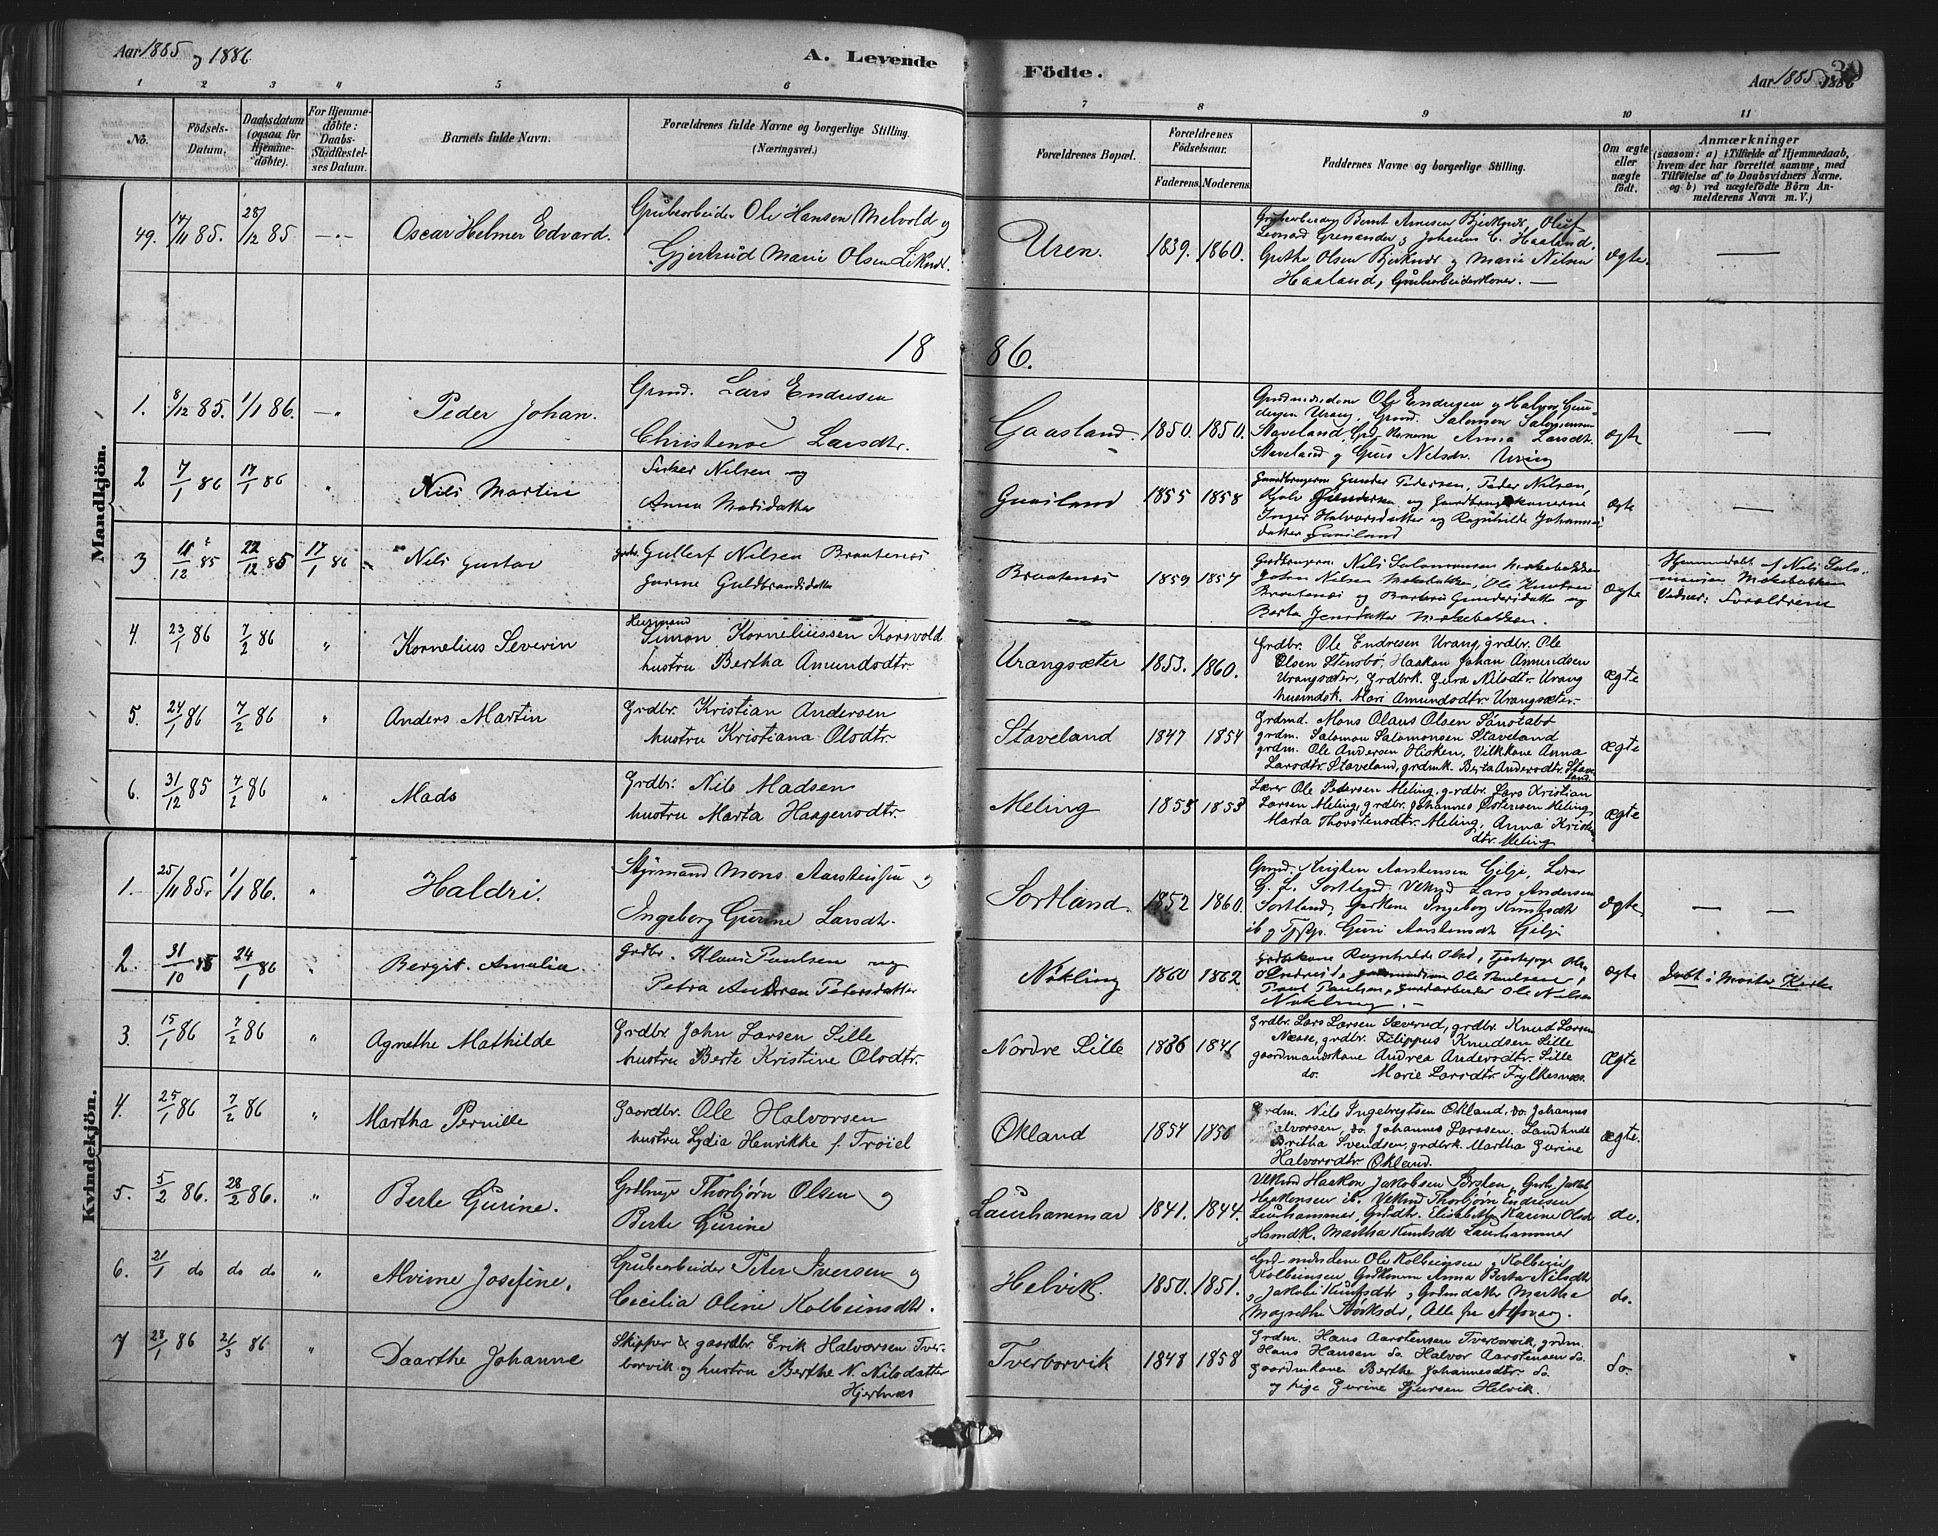 Aar 1885 og 1886
A. Levende
Födte.
Aar 1885 1886
39
1 2 3 4 5 6 7 8 9 10 11
No.
Födsels-Datum.
Daabsdatum (ogsaa for Hjemmedöbte).
For Hjemmedöbte: Daabs-Stadfæstelses Datum.
Barnets fulde Navn.
Forældrenes fulde Navne og borgerlige Stilling.
(Næringsvei.)
Forældrenes Bopæl.
Forældrenes Födselsaar.
Faderens. Moderens.
Faddernes Navne og borgerlige Stilling.
Om ægte eller uægte født.
Anmærkninger
(saasom: a) i Tilfælde af Hjemmedaab, hvem der har forrettet samme, med Tilföielse af to Daabsvidners Navne, og b) ved uægtefödte Börn Anmelderens Navn m. V.)
49. 14/11 85. 28/12 85 Oscar Helmer Edvard.
Grubearbeider Ole Hansen Melvold og
Gjertrud Marie Olsen
Uren. 1839. 1860.
Grubearbeider Bernt Arnesen, Oluf
Leonard Grenander, Johannes C. Haaland.
Grethe Olsen og Marie Nilsen
Haaland, Grubearbeiderkoner.
ægte.
1886.
Mandkjön.
1. 8/12 85. 1/1 86. Peder Johan.
Grmd. Lars Endresen
Christense Larsdtr.
Gaasland. 1850. 1850.
Grdmændene Ole Endresen og Halvor Gundersen Urang, Grmd. Salomon Salomonsen
Staveland, Anna Larsdt.
Staveland og Guri Nilsdr. Urang
ægte
2 7/1 86 17/1 86 Nils Martin
Nilsen og
Anna Madsdatter
1855 1858
Gunder Pedersen, Peder Nilsen,
Inger Halvorsdatter og Ragnhilde Johannesdatter
ægte
3 11/12 85 22/12 85 17/1 86 Nils Gustav
Gullef Nilsen Braatenæs
Guldbrandsdatter
Braatenæs 1859 1857
Nils Salomonsen Mokebakken
John Nilsen Mokebakken, Ole Knutsen
Braatenæs og Barbru Gundersdatter og
Berta Jensdatter Mokebakken.
ægte
Hjemmedøbt af Nils Salomonsen Mokebakken
Vidner: Forældrene
4. 23/1 86 7/2 86 Kornelius Severin
Husmand
Simon Korneliussen Korsvold
hustru Bertha Amundsdtr.
Urangsæter 1853. 1860.
Grdbr. Ole Endresen Urang, grdbr. Ole
Olsen Stensbø, Haakon Johan Amundsen
Urangsæter, Grdbrk. Gura Nilsdtr. Urang
husmdsk. Mari Amundsdtr. Urangsæter.
ægte
5. 24/1 86 7/2 86 Anders Martin
Grdbr. Kristian Andersen
hustru Kristiana Olsdtr.
Staveland 1847 1854
Grdmd. Mons Olaus Olsen Sønstabø
grdm. Salomon Salomonsen Staveland
grdm. Ole Andersen Hisken, Anna
Larsdtr. Staveland, grdmk. Berta Andersdtr. Staveland
ægte
6. 31/12 85 7/2 86 Mads
Grdbr. Nils Madsen
hustru Marta Haagensdtr.
Meling 1853 1853
Lærer Ole Pedersen Meling, grdbr. Lars Kristian
Larsen Meling, grdbr. Johannes Østensen Meling
Marta Thorstensdtr. Meling, Anna Kristendtr. Meling
ægte
Kvindekjön.
1. 25/11 85. 1/1 86. Haldri.
Styrmand Mons Aarstensen og
Ingeborg Gurine Larsdt.
Sortland. 1852 1860.
Grmd. Kristen Aarstensen Gilje, Lærer
G. L. Sortland, Lars Andersen
Sortland, Ingeborg Knutsdt
ib og Guri Aarstensdt Gilje
ægte
2. 31/10 85 24/1 86 Bergit. Amalia
Grdbr. Klaus Paulsen og
Petra Andrea Petersdatter
Nøkling 1860 1862
Ragnhilde
Ole Paulsen,
Paul Paulsen, Gaardarbeider Ole Nilsen
Nøkling.
ægte
Døbt i Moster Kirke
3. 15/1 86 7/2 86 Agnethe Mathilde
Grdbr John Larsen Lille
hustru Berte Kristine Olsdtr.
Nordre Lille 1836 1841
Grdbr. Lars Larsen Sæverud, grdbr. Knud Larsen
Næsse, grdbr. Filippus Knudsen Lille
gaardmandskone Andrea Andersdtr. Lille
do. Marie Larsdtr. Fylkesnæs.
ægte
4. 25/1 86 7/2 86 Martha Pernille
Gaardbr. Ole Halvorsen
hustru Lydia Henrikke f. Trøiel
Økland 1854 1856
Grdm. Nils Ingebregtsen Økland, do. Johannes
Halvorsen, do. Johannes Larssen. Landkunde
Britha Svendsen, grdbrk. Martha Gurine
Halvorsdtr. Økland.
ægte.
5. 5/2 86. 28/2 86. Berte Gurine.
Thorbjørn Olsen og
Berte Gurine
Laurhammar 1841. 1844.
Haakon Jakobsen Jakob
Haakonsen ib. Thorbjørn Endresen
Laurhammer, Elisabeth Karine Olsdr
Hsmdk. Martha Knutsdt Laurhammer
do.
6. 21/1 do do do Alvine Josefine.
Grubearbeider Peter Iversen og
Cecilia Oline Kolbeinsdt.
Helvik. 1850. 1851.
Grd-mændene Ole Kolbeinsen, Kolbein
Kolbeinsen, Anna Berta Nilsdt
Martha
do.
7 28/1 86 21/3 86 Daarthe Johanne
Skipper & gaardbr. Erik Halvorsen Tverborvik og hustru Berthe N. Nilsdatter
Hjertnæs
Tverborvik 1848 1858
Grdm. Hans Aarstensen Tverborvik, grdm.
Hans Hansen do. Halvor Aarstensen do.
Gaardmkone Berthe Johannesdtr. do.
og pige Gurine Sjursen Helvik.
do.